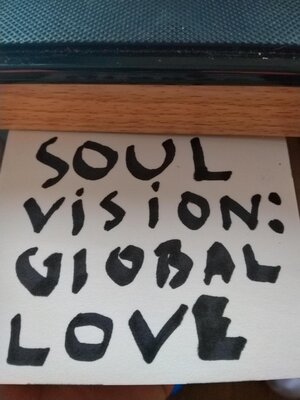 SOUL
ViSiON:
GlOBAL
LOVE